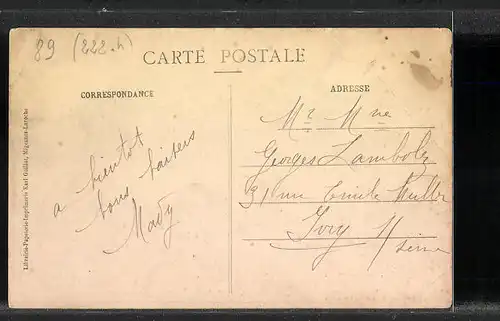 89 (222.h)
CARTE POSTALE
CORRESPONDANCE
ADRESSE
a bientot
bons baisers
Mady
Mr Mme
Georges
31 rue Emile
Ivry s/
Seine
Librairie-Papeterie-Imprimerie Karl Guillot, Migennes-Laroche